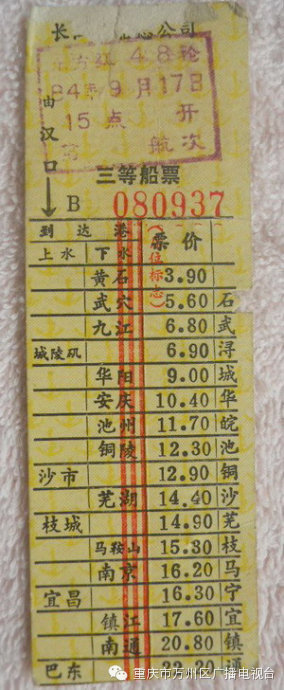 长
公司
东方红48轮
84年9月17日
15点开
航次
由汉口
三等船票
B 080937
到达港 票价
上水 下水
黄石 3.90
武穴 5.60 石
九江 6.80 武
城陵矶 6.90 浔
华阳 9.00 城
安庆 10.40 华
池州 11.70 皖
铜陵 12.30 池
沙市 12.90 铜
芜湖 14.40 沙
枝城 14.90 芜
马鞍山 15.30 枝
南京 16.20 马
宜昌 16.30 宁
镇江 17.60 宜
南通 20.80 镇
巴东
重庆市万州区广播电视台